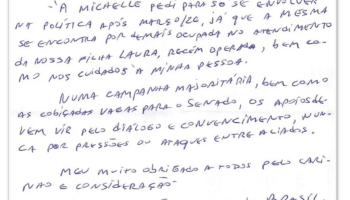 "À MICHELLE PEDI PARA SÓ SE ENVOLVER
NA POLÍTICA APÓS MARÇO/26, JÁ QUE A MESMA
SE ENCONTRA POR DEMAIS OCUPADA NO ATENDIMENTO
DA NOSSA FILHA LAURA, RECÉM OPERADA, BEM CO-
MO NOS CUIDADOS À MINHA PESSOA.
NUMA CAMPANHA MAJORITÁRIA, BEM COMO
AS COBIÇADAS VAGAS PARA O SENADO, OS APOIOS DE-
VEM VIR PELO DIÁLOGO E CONVENCIMENTO, NUN-
CA POR PRESSÕES OU ATAQUES ENTRE ALIADOS.
MEU MUITO OBRIGADO A TODOS PELO CARI-
NHO E CONSIDERAÇÃO.
BRASIL